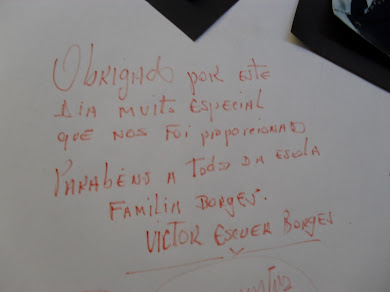 Obrigado por este
dia muito especial
que nos foi proporcionado
Parabéns a todos da escola
Familia Borges.
Victor Escuer Borges